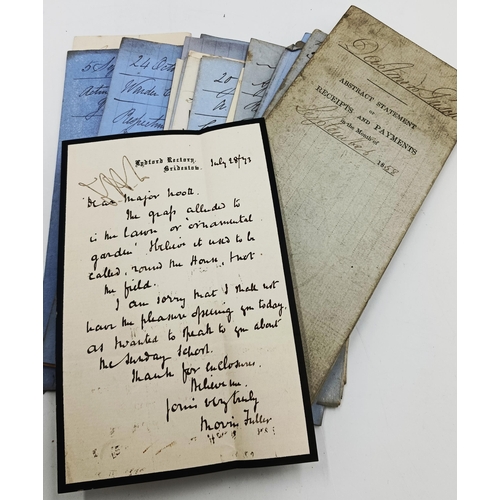 5
24 Octo
Under
20
Dartmoor
ABSTRACT STATEMENT
OF
RECEIPTS AND PAYMENTS
in the Month of
September 1868
Lydford Rectory,
Bridestow.
July 28/73
Dear Major Noott.
The grass alluded to
is the lawn or "ornamental
garden" I believe it used to be
called, round the House, & not
the field.
I am sorry that I shall not
have the pleasure of seeing you today,
as I wanted to speak to you about
the Sunday School.
Thanks for enclosures.
Believe me
yours very truly
Morris Fuller